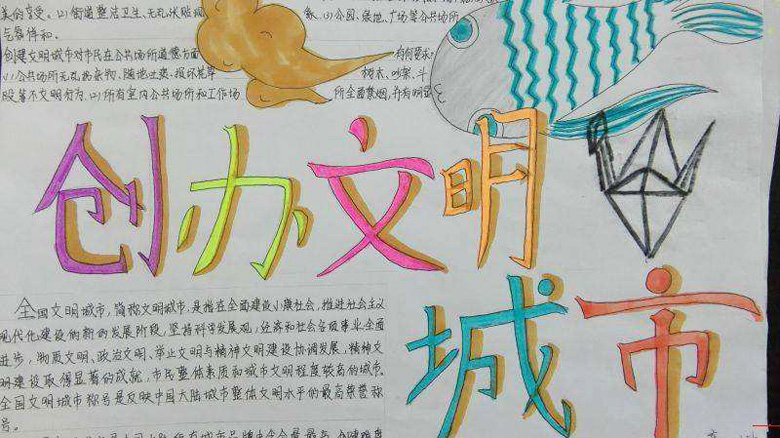 美的享受、(2)街道整洁卫生、无乱
象、(1)公园、绿地、广场等公共场所
气氛祥和。
创建文明城市对市民在公共场所道德方面
有何要求?
(1)公共场所无乱扔杂物、随地吐痰、损坏花草
树木、吵架、斗
殴等不文明行为、(2)所有室内公共场所和工作场
所全面禁烟,并有明显
创办文明
城市
全国文明城市,简称文明城市,是指在全面建设小康社会,推进社会主义
现代化建设的新的发展阶段,坚持科学发展观,经济和社会各项事业全面
进步,物质文明、政治文明、与精神文明建设协调发展,精神文
明建设取得显著的成就,市民整体素质和城市文明程度较高的城市。
全国文明城市称号是反映中国大陆城市整体文明水平的最高荣誉称
号。